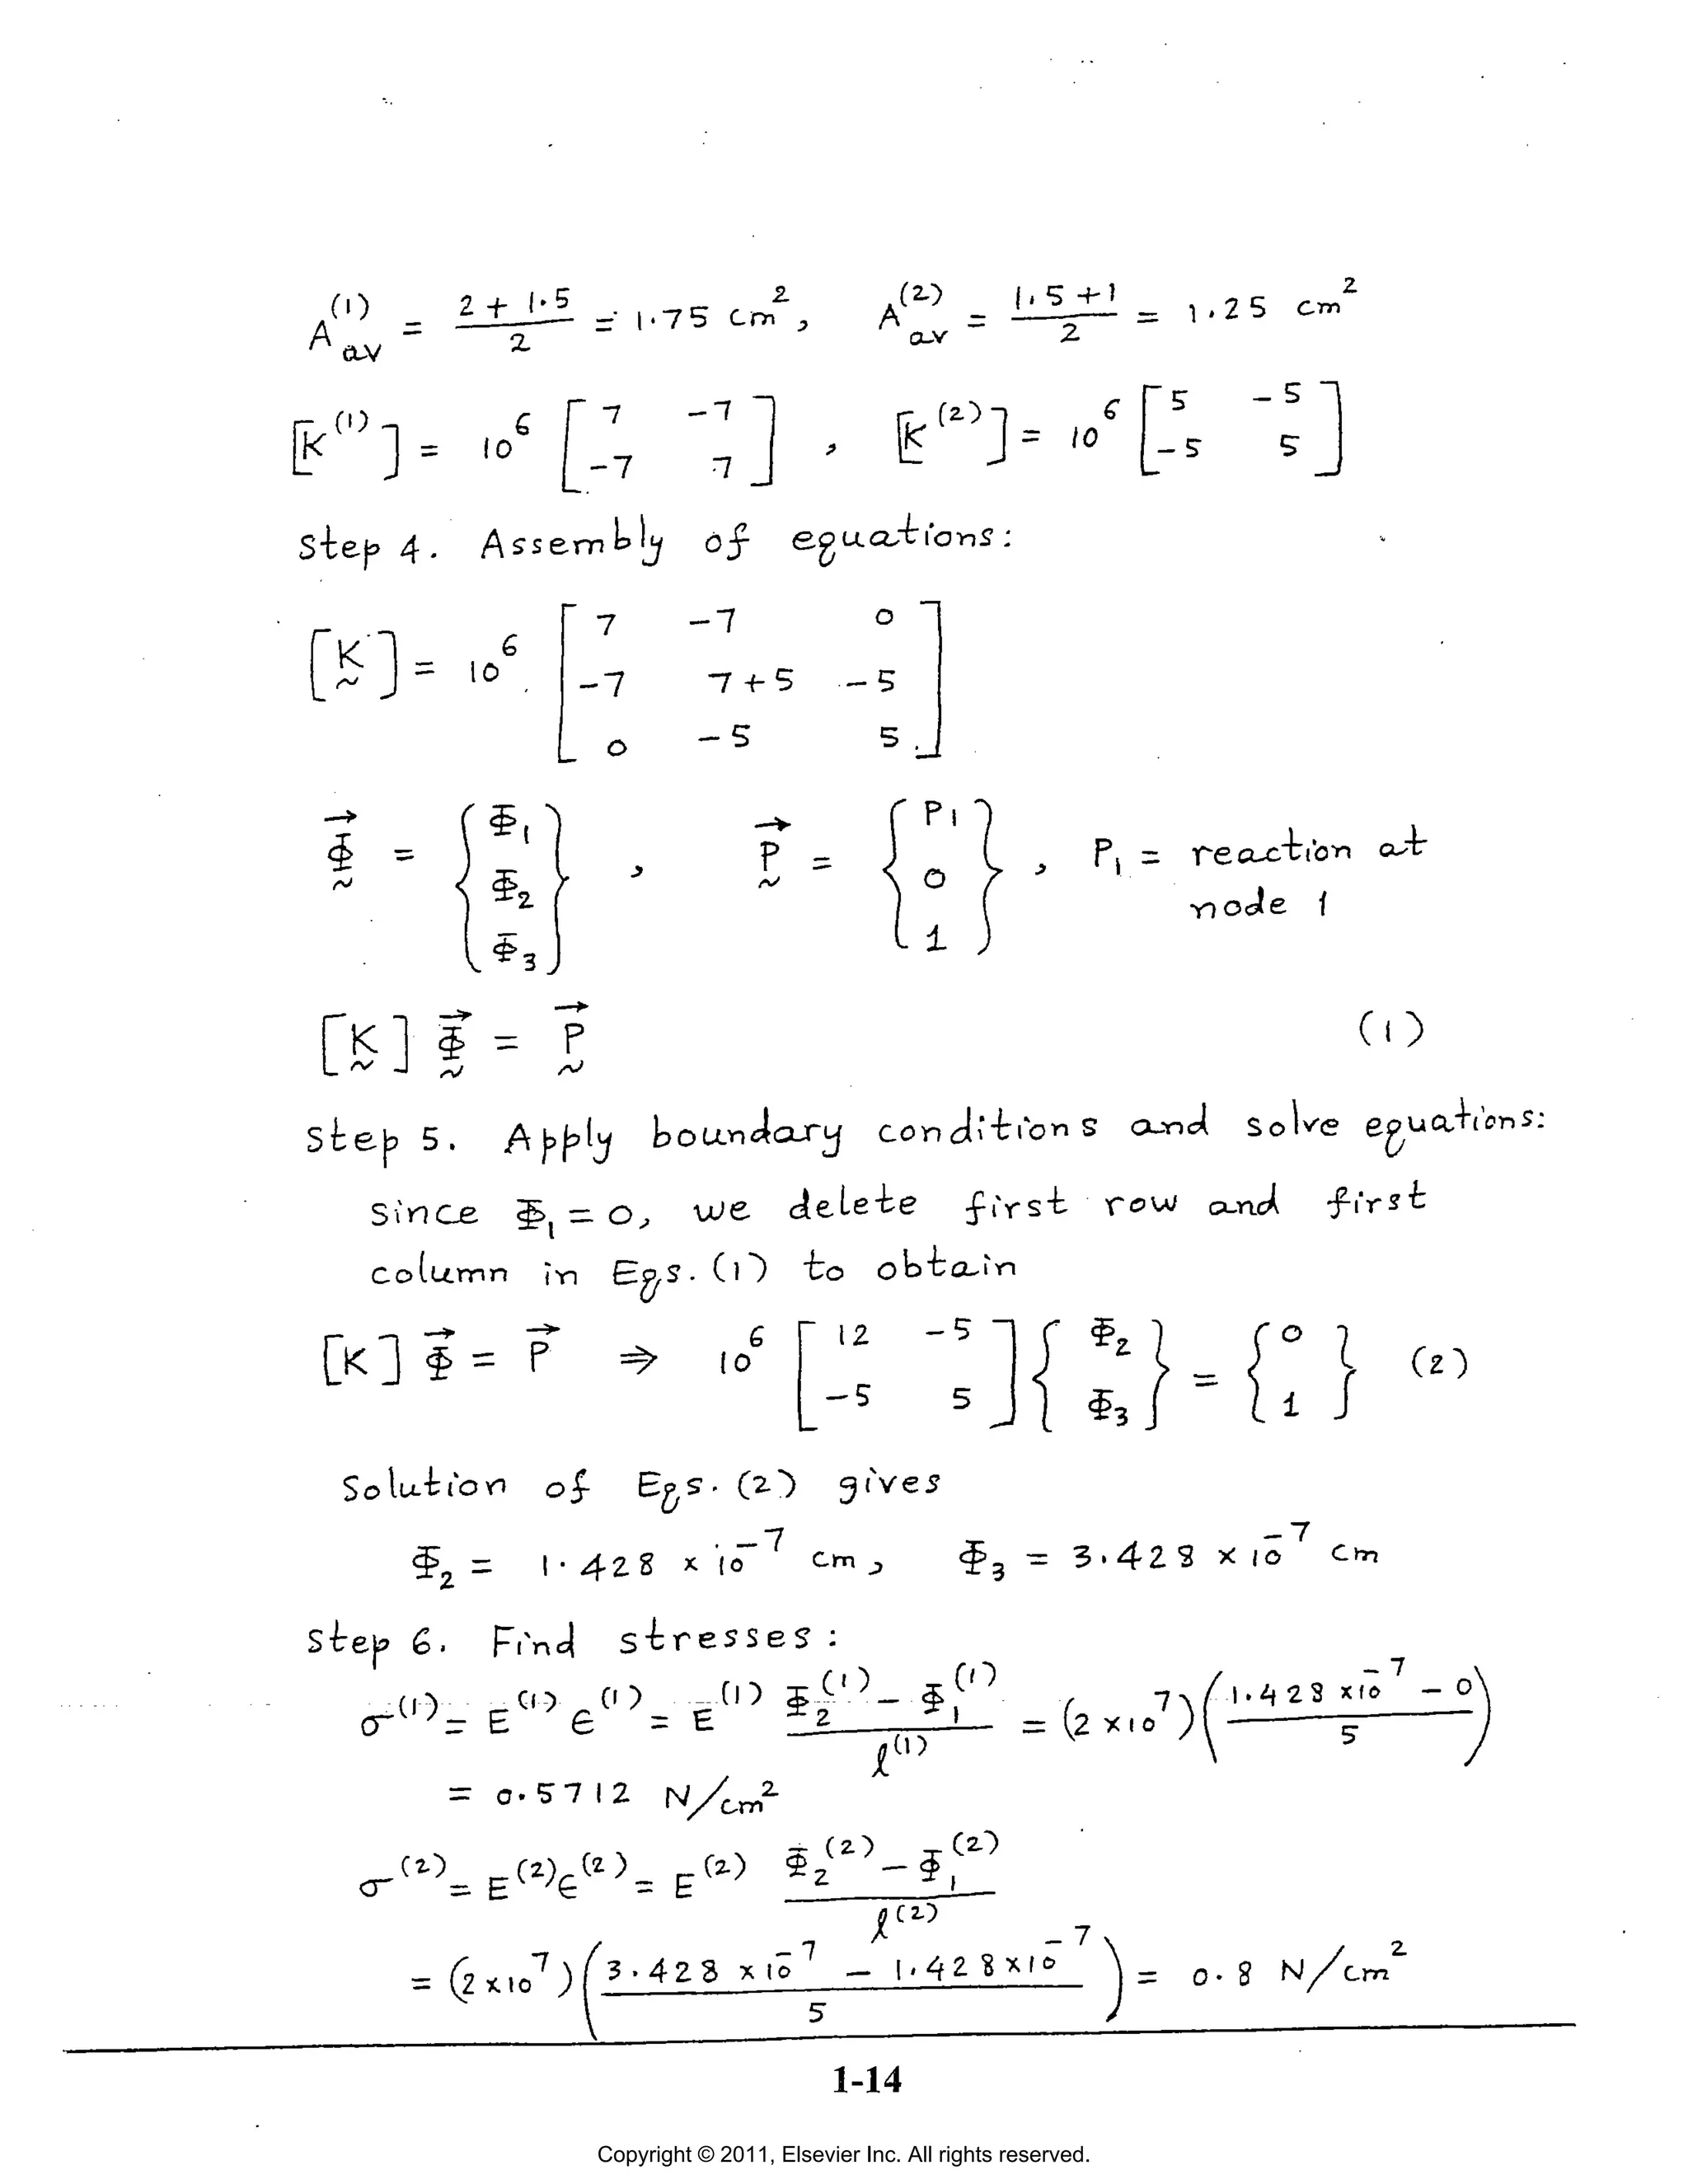 A_av^(1) = (2 + 1.5)/2 = 1.75 cm², A_av^(2) = (1.5 + 1)/2 = 1.25 cm²
[K^(1)] = 10⁶ [7 -7; -7 7], [K^(2)] = 10⁶ [5 -5; -5 5]
Step 4. Assembly of equations:
[K̰] = 10⁶ [7 -7 0; -7 7+5 -5; 0 -5 5]
Φ̰⃗ = {Φ₁; Φ₂; Φ₃}, P̰⃗ = {P₁; 0; 1}, P₁ = reaction at
node 1
[K̰] Φ̰⃗ = P̰⃗ (1)
Step 5. Apply boundary conditions and solve equations:
Since Φ₁ = 0, we delete first row and first
column in Eqs. (1) to obtain
[K] Φ⃗ = P⃗ ⇒ 10⁶ [12 -5; -5 5] {Φ₂; Φ₃} = {0; 1} (2)
Solution of Eqs. (2) gives
Φ₂ = 1.428 × 10⁻⁷ cm, Φ₃ = 3.428 × 10⁻⁷ cm
Step 6. Find stresses:
σ^(1) = E^(1) ε^(1) = E^(1) (Φ₂^(1) - Φ₁^(1))/l^(1) = (2 × 10⁷)((1.428 × 10⁻⁷ - 0)/5)
= 0.5712 N/cm²
σ^(2) = E^(2) ε^(2) = E^(2) (Φ₂^(2) - Φ₁^(2))/l^(2)
= (2 × 10⁷)((3.428 × 10⁻⁷ - 1.428 × 10⁻⁷)/5) = 0.8 N/cm²
1-14
Copyright © 2011, Elsevier Inc. All rights reserved.